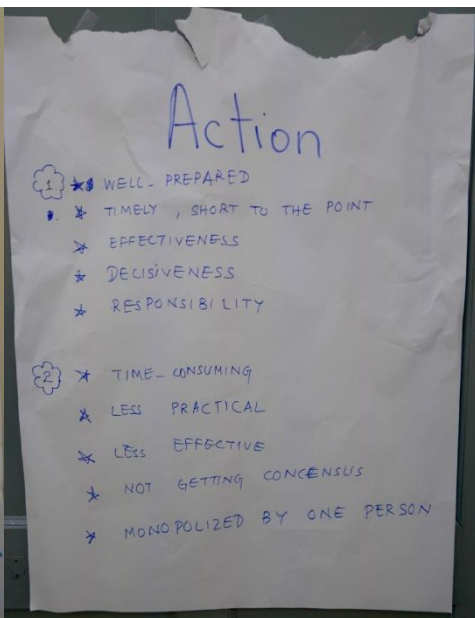 Action
1 * WELL-PREPARED
* TIMELY, SHORT TO THE POINT
* EFFECTIVENESS
* DECISIVENESS
* RESPONSIBILITY
2 * TIME-CONSUMING
* LESS PRACTICAL
* LESS EFFECTIVE
* NOT GETTING CONCENSUS
* MONOPOLIZED BY ONE PERSON